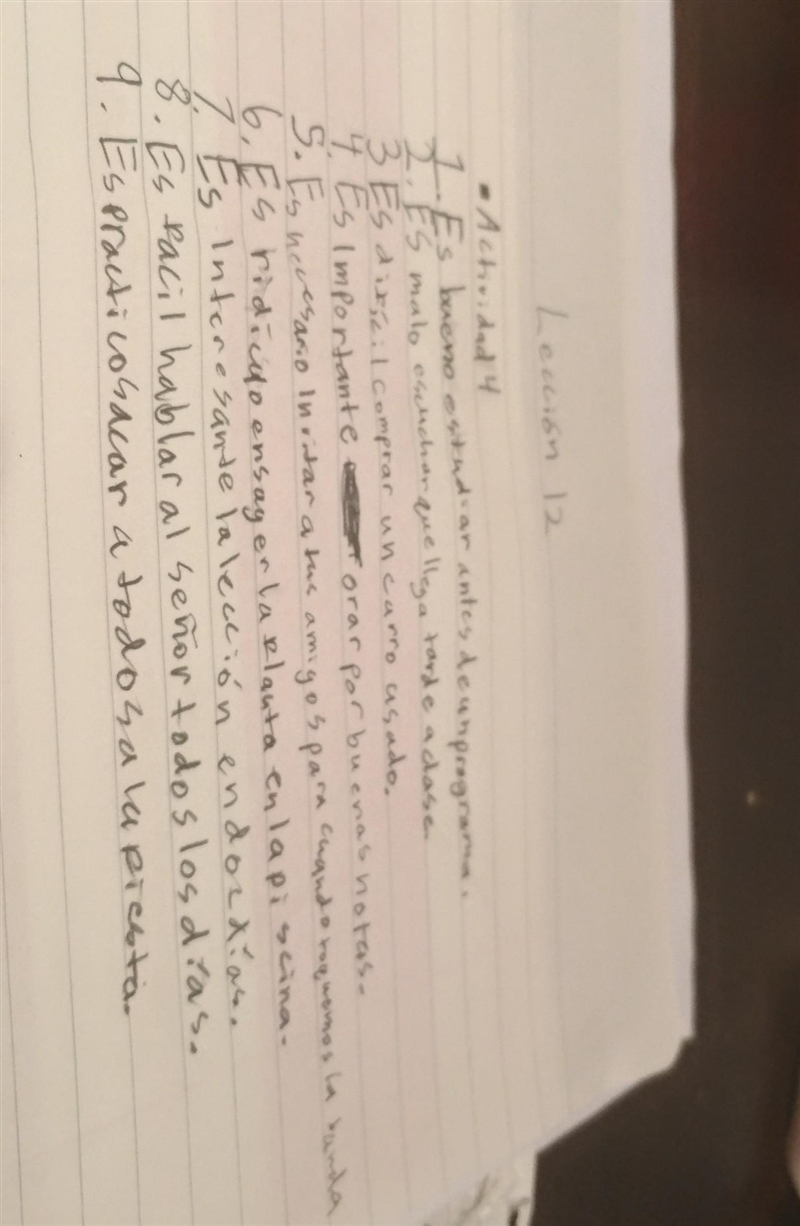 Lección 12
• Actividad 4
1. Es bueno estudiar antes de un programa.
2. Es malo escuchar que llega tarde a clase.
3 Es difícil comprar un carro usado.
4. Es Importante orar por buenas notas.
5. Es necesario Invitar a tus amigos para cuando toquemos la banda
6. Es ridículo ensayer la flauta en la piscina.
7. Es Interesante la lección en doz días.
8. Es facil hablar al señor todos los días.
9. Es practico sacar a todos a la fiesta.